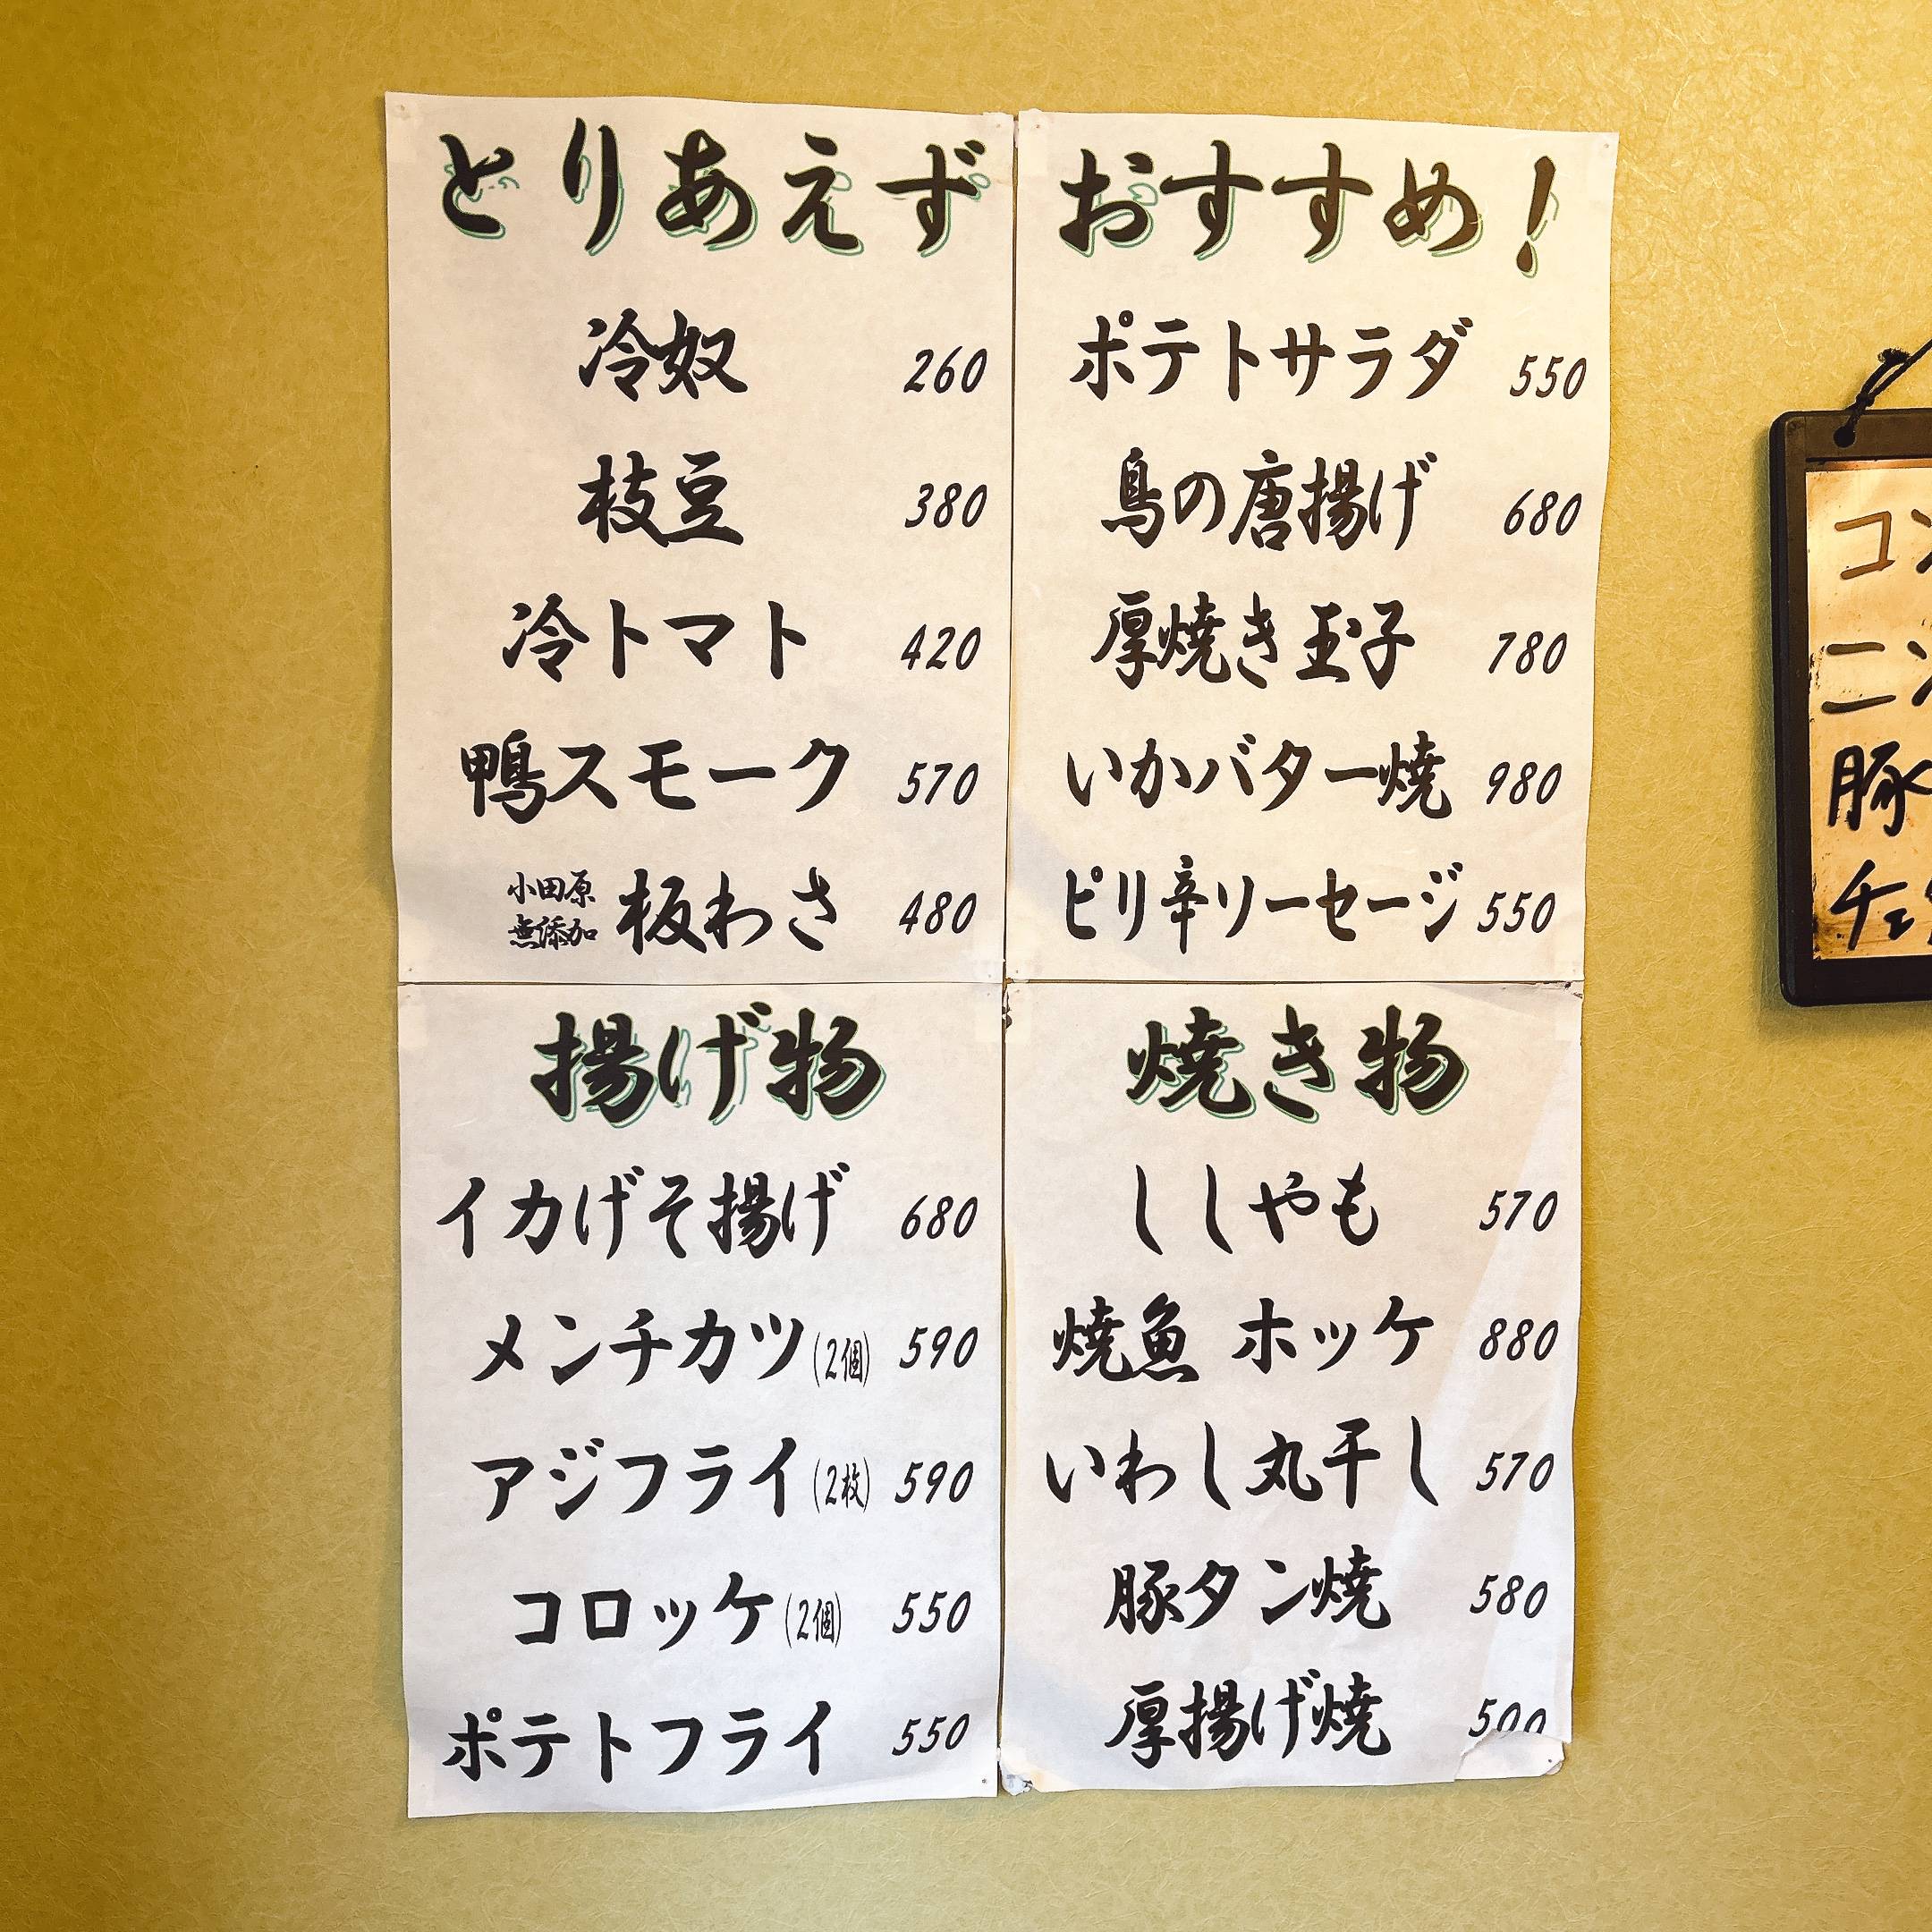 とりあえず
冷奴 260
枝豆 380
冷トマト 420
鴨スモーク 570
小田原
無添加 板わさ 480
おすすめ!
ポテトサラダ 550
鳥の唐揚げ 680
厚焼き玉子 780
いかバター焼 980
ピリ辛ソーセージ 550
揚げ物
イカげそ揚げ 680
メンチカツ(2個) 590
アジフライ(2枚) 590
コロッケ(2個) 550
ポテトフライ 550
焼き物
ししゃも 570
焼魚 ホッケ 880
いわし丸干し 570
豚タン焼 580
厚揚げ焼 500
コン
ニン
豚
チェ